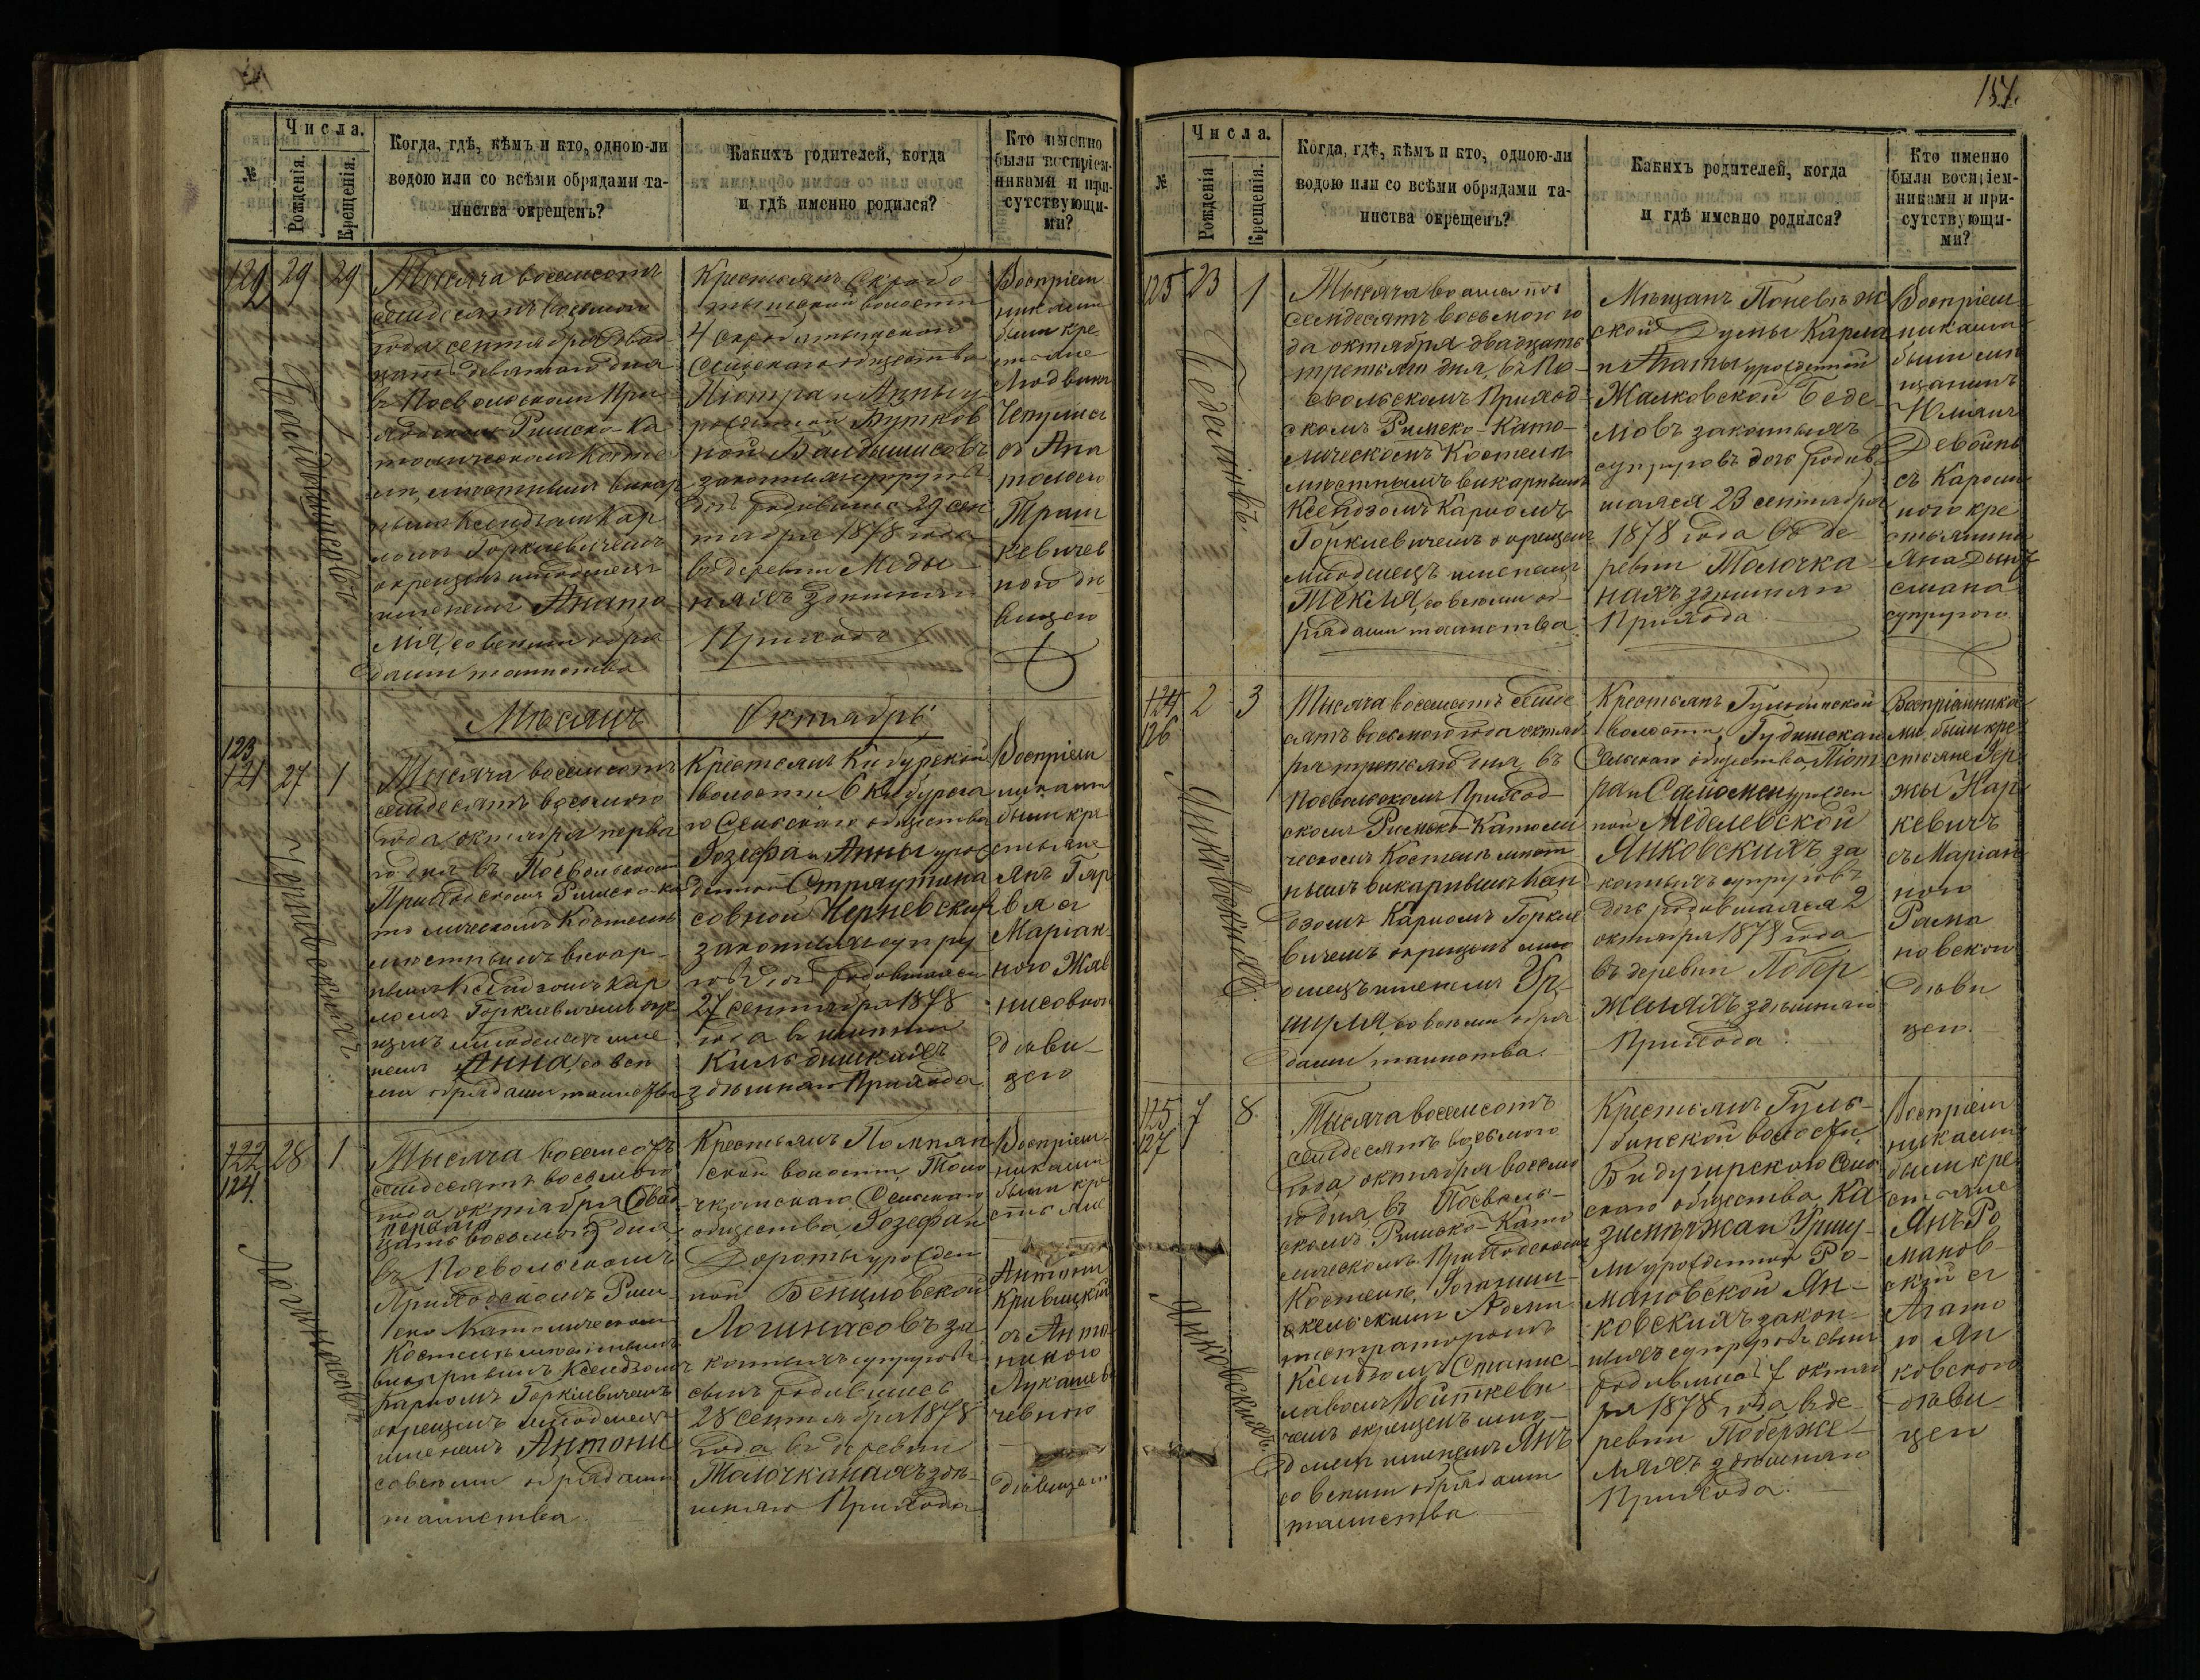 Числа.
№
Рожденія.
Крещенія.
Когда, гдѣ, кѣмъ и кто, одною-ли
водою или со всѣми обрядами та-
инства окрещенъ?
Какихъ родителей, когда
и гдѣ именно родился?
Кто именно
были воспріем-
никами и при-
сутствующи-
ми?
29 29
Тысяча восемсотъ
семдесятъ восьмого
года сентября двад-
цать девятого дня
въ Посвольскомъ При-
ходскомъ Римско-Ка-
толическомъ Косте-
лѣ, мѣстнымъ викар-
нымъ Ксендзомъ Кар
ломъ Горкиевичемъ
окрещенъ младенецъ
именемъ
со всѣми обря
дами таинства
Крестьянъ
волости
Сельскаго общества
Піотра и Анны у-
рожденной Бутков
ной
законныхъ супруго
родившаяся 29 сен
тября 1878 года
въ деревни
няхъ здѣшняго
Прихода
Воспріем
никами
были кре
стьяне
Людвикъ
съ Ана
толією
дѣ
вицею
Мѣсяцъ Октябрь
123
27 1
Чернѣвскихъ
Тысяча восемсотъ
семдесятъ восьмого
года октября перва
го дня въ Посвольскомъ
Приходскомъ Римско-Ка
толическомъ Костелѣ
мѣстнымъ викар-
нымъ Ксендзомъ Кар
ломъ Горкиевичемъ окре
щенъ младенецъ име
немъ Анна, со всѣ
ми обрядами таинства
Крестьянъ Кибурской
волости 6 Кибурска
го Сельскаго общества
Іозефа и Анны урож
денной Стряутина
совной Чернѣвскихъ
законныхъ супру
говъ дочь родившаяся
27 сентября 1878
года въ
здѣшняго Прихода
Воспріем
никами
были кре
стьяне
Янъ
съ
Маріан-
ною
нисовною
дѣви-
цею
122
124.
28 1
Логинасовъ
Тысяча восемсотъ
семдесятъ восьмого
года октября двад
перваго
цать восьмого дня
въ Посвольскомъ
Приходскомъ Рим-
ско Католическомъ
Костелѣ мѣстнымъ
викарнымъ Ксендзомъ
Карломъ Горкіевичемъ
окрещенъ младенецъ
именемъ Антони
со всѣми обрядами
таинства
Крестьянъ Помпян
ской волости, Толо
чканскаго Сельскаго
общества, Іозефа и
Дороты урожден
ной
Логинасовъ за
конныхъ супруговъ
сынъ родившийся
28 сентября 1878
года въ деревни
Толочканахъ здѣ-
шняго Прихода
Воспріем-
никами
были кре
стьяне
Антони
Кривицкій
съ Анто-
ниною
Лукаше
вичевною
дѣвицею
157.
Числа.
№
Рожденія
Крещенія.
Когда, гдѣ, кѣмъ и кто, одною-ли
водою или со всѣми обрядами та-
инства окрещенъ?
Какихъ родителей, когда
и гдѣ именно родился?
Кто именно
были воспріем-
никами и при-
сутствующи-
ми?
125 23 1
Тысяча восемсотъ
семдесятъ восьмого го
да октября двадцать
третьяго дня, въ По-
свольскомъ Приход-
скомъ Римско-Като-
лическомъ Костелѣ
мѣстнымъ викарнымъ
Ксендзомъ Карломъ
Горкиевичемъ окрещенъ
младенецъ именемъ
Текля, со всѣми об-
рядами таинства.
Мѣщанъ Поневѣж
ской Думы Карла
и Агаты урожденной
Жалковской Беде-
ловъ законныхъ
супруговъ дочь родив-
шаяся 23 сентября
1878 года въ де
ревни Толочка-
нахъ здѣшняго
Прихода
Воспріем-
никами
были мѣ
щанинъ
Юліянъ
съ Кароли
ною кре
стьянина
Яна
супругою
124
126
2 3
Янковскихъ
Тысяча восемсотъ семде
сятъ восьмого года октяб
ря третьяго дня, въ
Посвольскомъ Приход-
скомъ Римско-Католи
ческомъ Костелѣ мѣст
нымъ викарнымъ Ксен
дзомъ Карломъ Горкие
вичемъ окрещенъ мла
денецъ именемъ Ур-
шуля, со всѣми обря
дами таинства.
Крестьянъ Гульбинской
волости,
Сельскаго общества, Піот
ра и Саломеи урожден
ной Медалевской
Янковскихъ за
конныхъ супруговъ
дочь родившаяся 2
октября 1878 года
въ деревни Побер
желяхъ здѣшняго
Прихода.
Воспріемника
ми были кре
стьяне
кевичъ
съ Маріан
ною
Рома
новскою
дѣви
цею.
125
127
7 8
Янковскихъ
Тысяча восемсотъ
семдесятъ восьмого
года октября восьмо
го дня, въ Посволь-
скомъ Римско-Като
лическомъ Приходскомъ
Костелѣ,
скимъ Адми
нистраторомъ
Ксендзомъ Станис-
лавомъ Войткеви
чемъ окрещенъ мла-
денецъ именемъ Янъ
со всѣми обрядами
таинства
Крестьянъ Гуль-
бинской волости,
Сель
скаго общества, Ка
и Уршу-
ли урожденной Ро-
мановской Ян-
ковскихъ закон-
ныхъ супруговъ сынъ
родившийся 7 октяб
ря 1878 года въ де-
ревни Поберже-
ляхъ здѣшняго
Прихода.
Воспріем
никами
были кре
стьяне
Янъ Ро
манов-
скій съ
Агато
ю Ян
ковскою
дѣви
цею